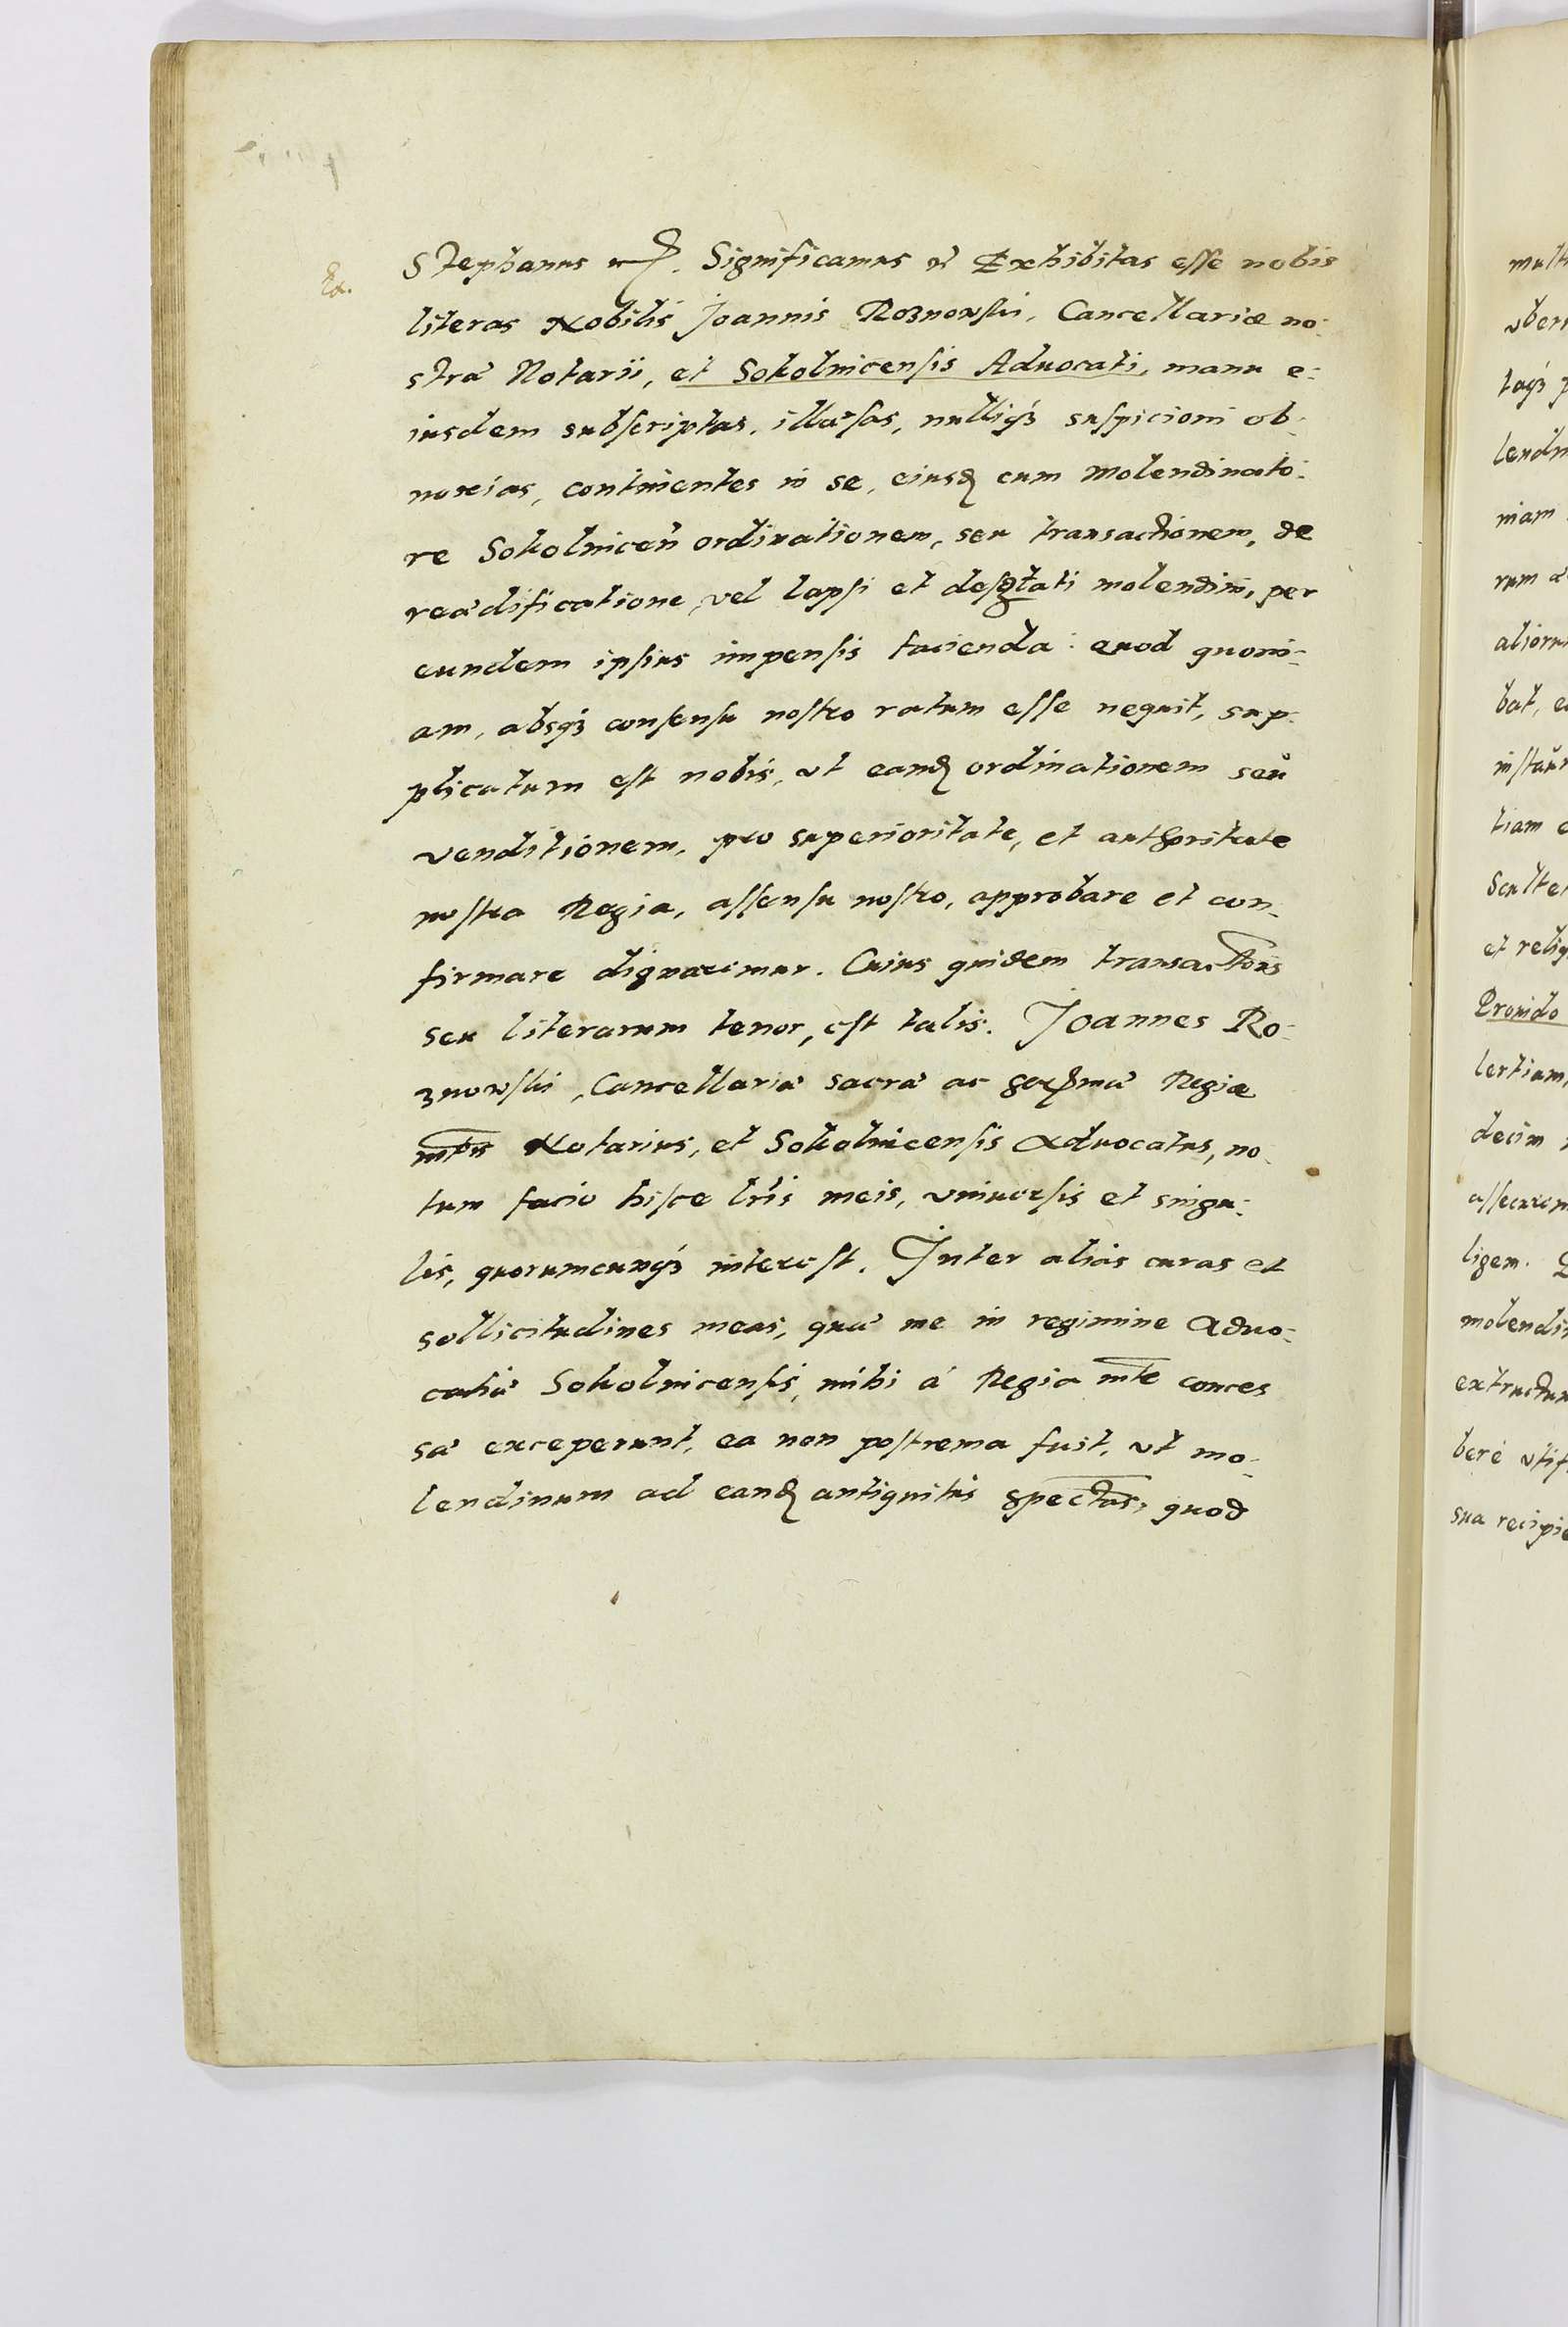 Stephanus Significamus Exhibitas esse nobis
literas Nobilis Joannis Roznowski, Cancellariæ no-
stræ Notarii, et Sokolnicensis Aduocati, manu e-
iusdem subscriptas, illæsas, nulliqꝫ suspicioni ob-
noxias, continentes in se, eiusd cum Molendinato-
re Sokolnicen ordinationem, seu transactionem, de
reædificatione, vel lapsi et molendini, per
eundem ipsius impensis facienda: quod quoni-
am, absqꝫ consensu nostro ratum esse nequit, sup-
plicatum est nobis, vt eand ordinationem seu
venditionem, pro superioritate, et authoritate
nostra Regia, assensu nostro, approbare et con-
firmare dignaremur. Cuius quidem transactionis
seu literarum tenor, est talis. Joannes Ro-
znowski, Cancellariæ sacræ ac Regiæ
mtis Notarius, et Sokolnicensis Aduocatus, no-
tum facio hisce lris meis, vniuersis et singu-
lis, quorumcunqꝫ interest. Inter alias curas et
sollicitudines meas, quæ me in regimine Aduo-
catiæ Sokolnicensis, mihi à Regia mte conces
sæ exceperunt, ea non postrema fuit, vt mo-
lendinum ad eand antiquitus spectans, quod
mult
vber
taqꝫ
lendin
niam
rum
alioru
bat,
instaur
tiam
Sculte
et reliq
Prouido
lertiam,
decim
assecurem
ligem.
molendin
extructum
bere vtif
sua recipie